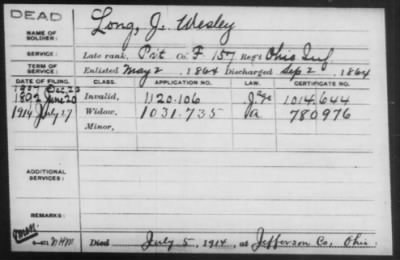 DEAD
NAME OF SOLDIER: Long, J. Wesley
SERVICE: Late rank, Pvt Co. F 157 Reg't Ohio Inf
TERM OF SERVICE: Enlisted May 2, 1864 Discharged Sep 2, 1864
DATE OF FILING. CLASS. APPLICATION NO. LAW. CERTIFICATE NO.
Dec 26
1892 June 20 Invalid, 1120.106 1014.644
1914 July 17 Widow, 1031.735 780976
Minor,
ADDITIONAL SERVICES:
REMARKS:
Died July 5, 1914, at Jefferson Co, Ohio.